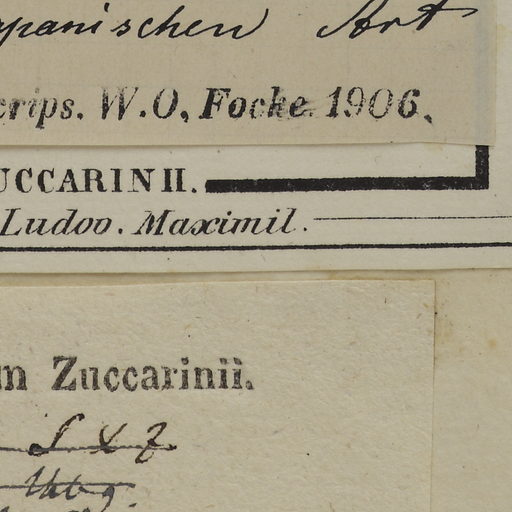 apanischen Art
crips. W.O. Focke 1906.
UCCARINII.
Ludov. Maximil.
m Zuccarinii.